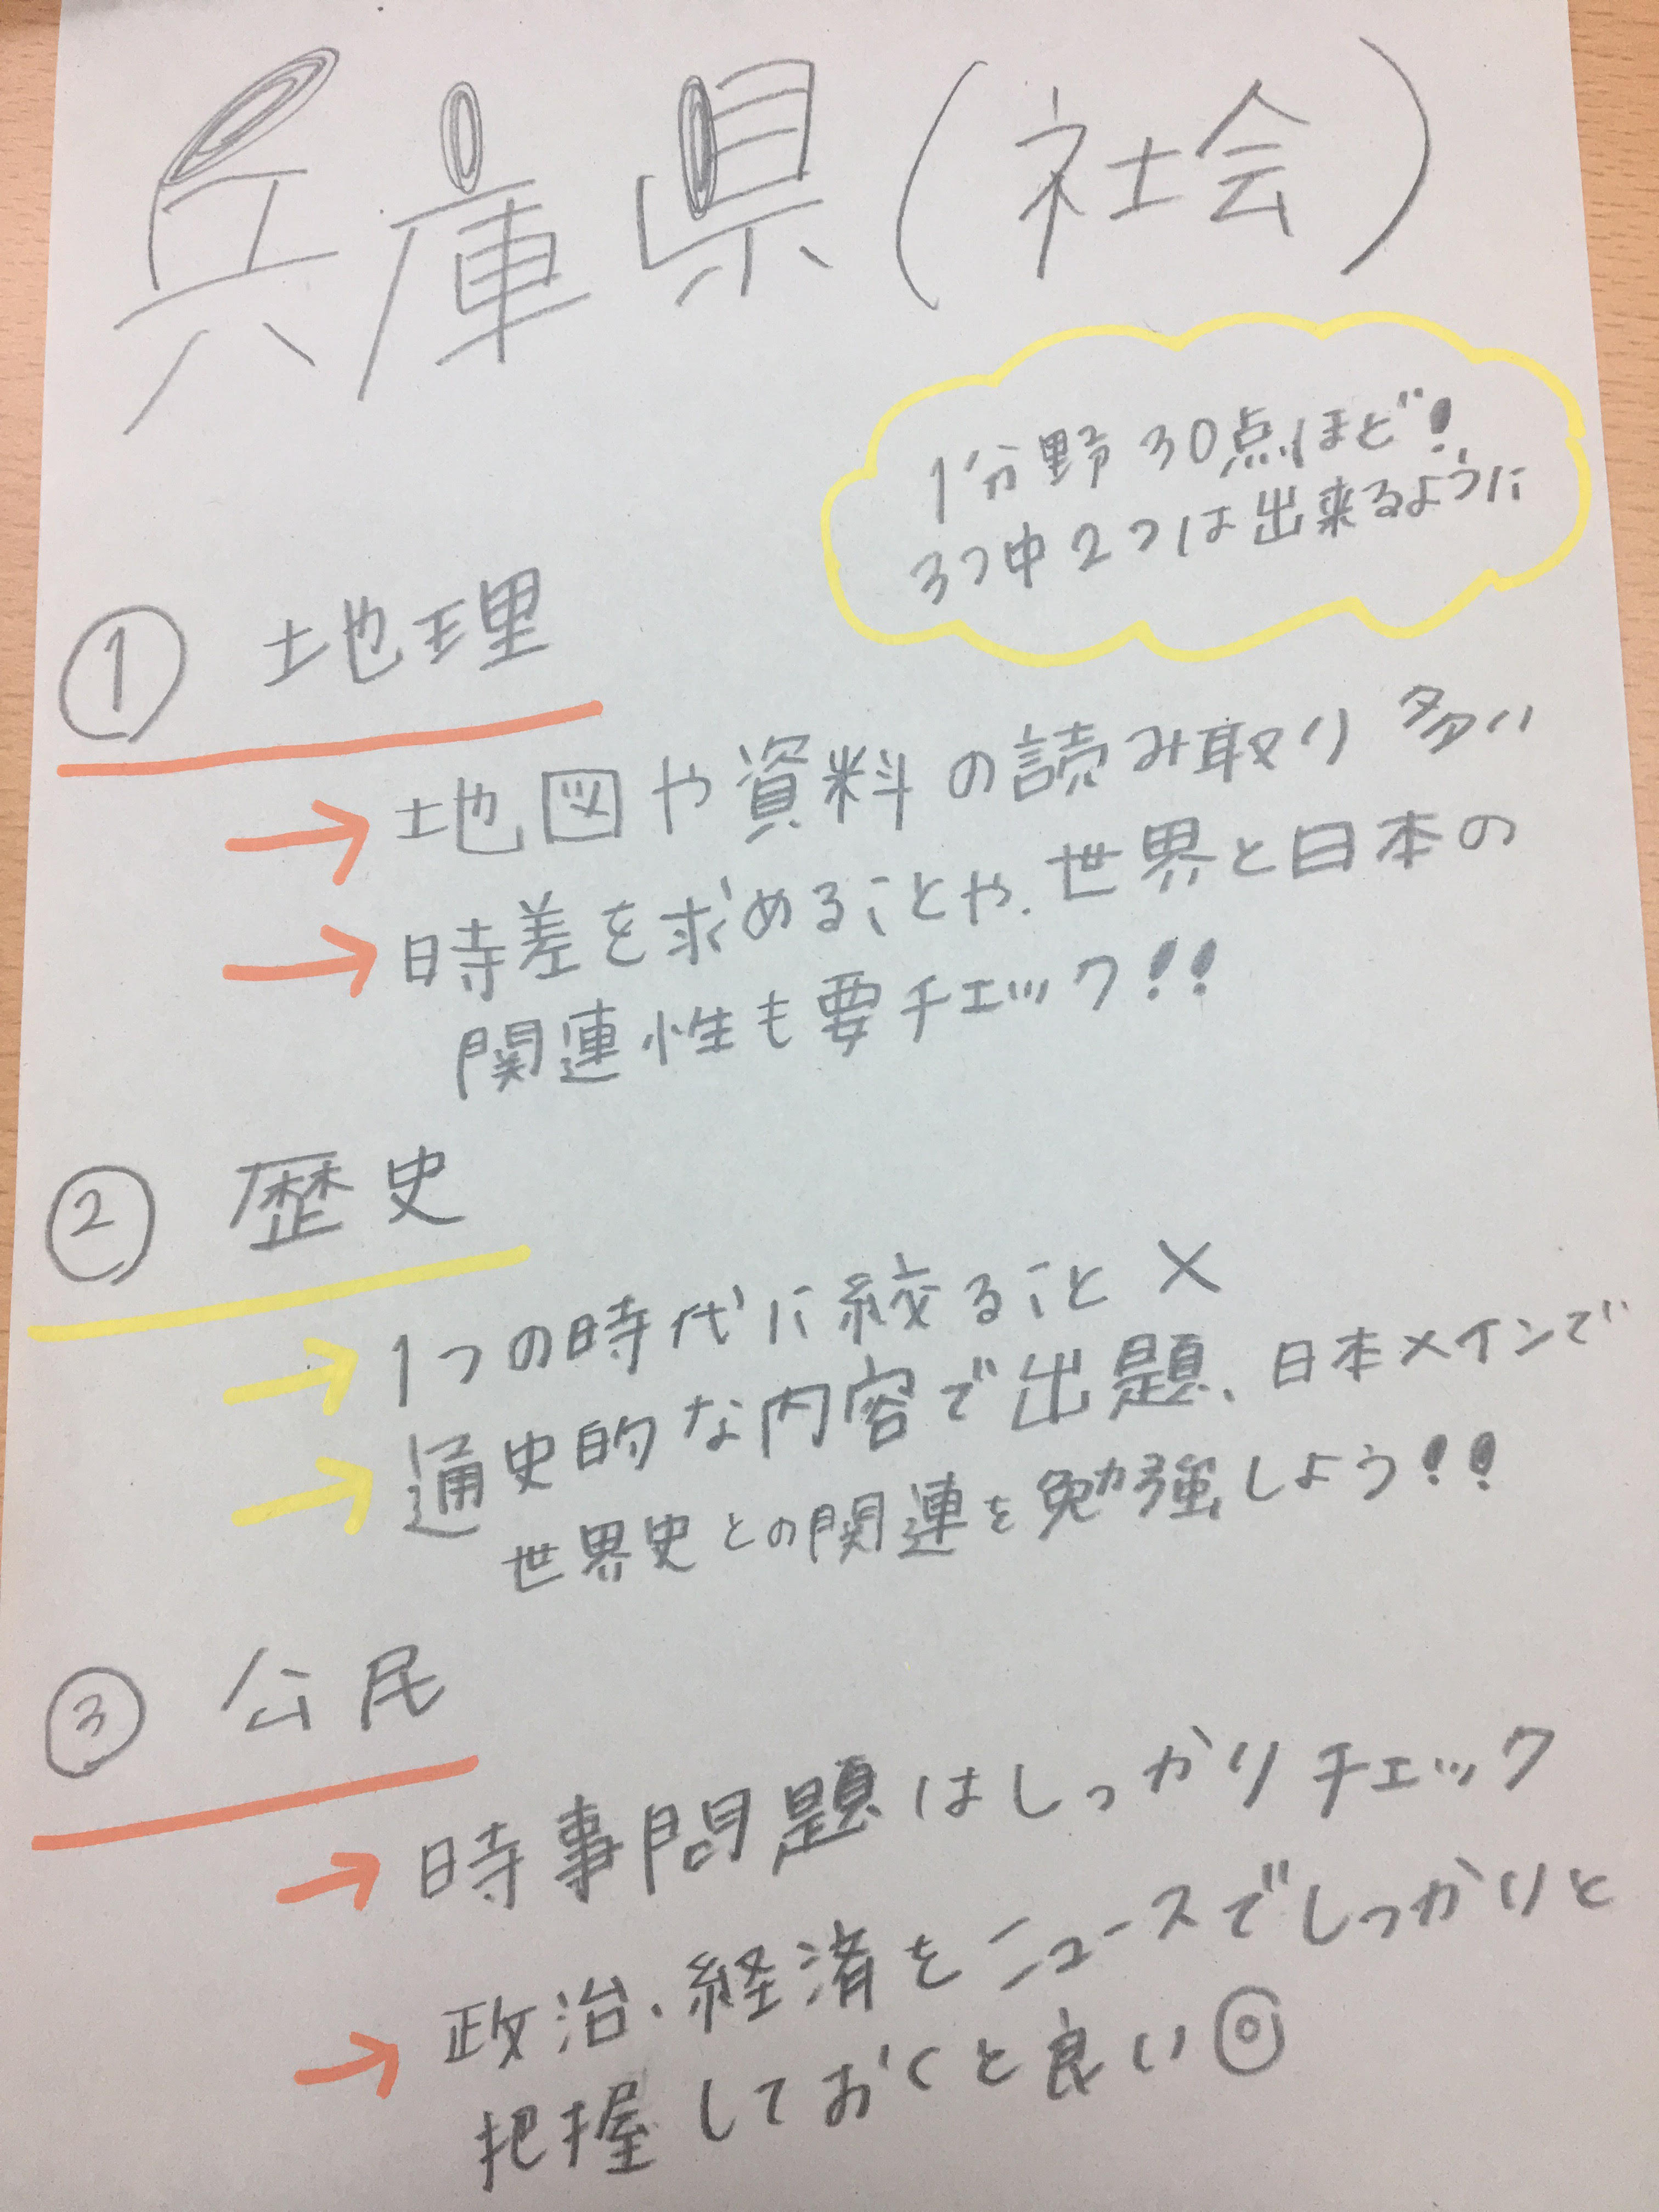 兵庫県(社会)
1分野30点ほど!
3つ中2つは出来るように
① 地理
→地図や資料の読み取り多い
→時差を求めることや、世界と日本の
関連性も要チェック!!
② 歴史
→1つの時代に絞ること×
→通史的な内容で出題、日本メインで
世界史との関連を勉強しよう!!
③ 公民
→時事問題はしっかりチェック
→政治、経済をニュースでしっかりと
把握しておくと良い◎